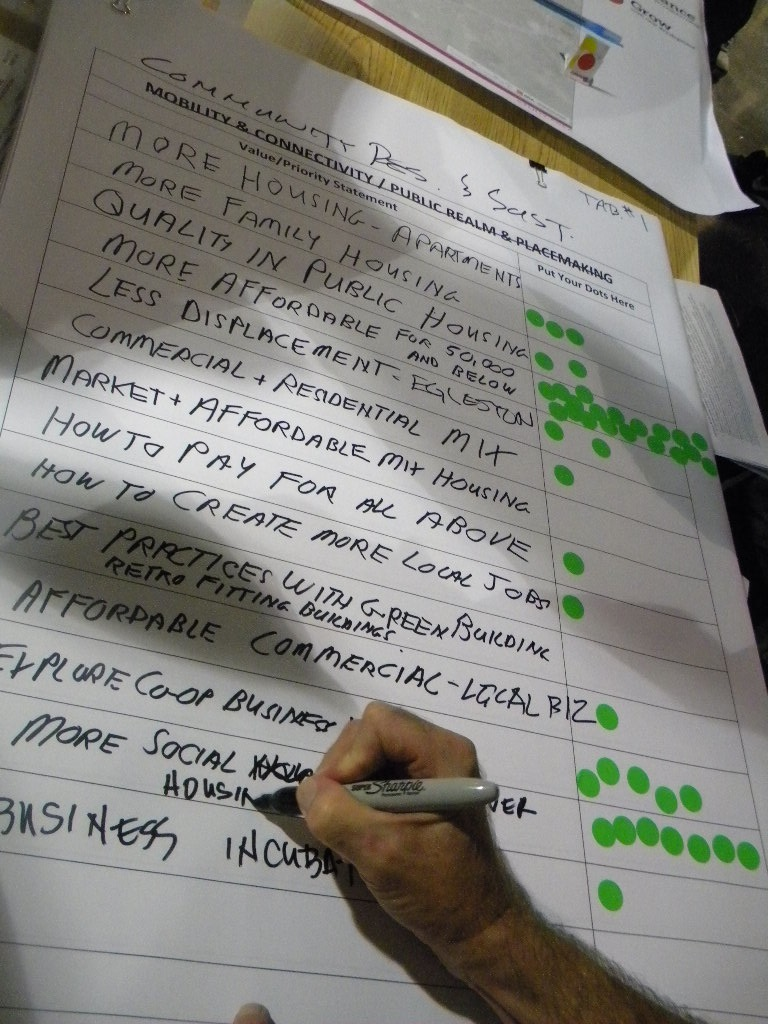 Grow
COMMUNITY RES. & SUST. TAB #1
MOBILITY & CONNECTIVITY / PUBLIC REALM & PLACEMAKING
Value/Priority Statement
Put Your Dots Here
MORE HOUSING - APARTMENTS
MORE FAMILY HOUSING
QUALITY IN PUBLIC HOUSING
MORE AFFORDABLE FOR 50,000
AND BELOW
LESS DISPLACEMENT - EGLESTON
COMMERCIAL + RESIDENTIAL MIX
MARKET + AFFORDABLE MIX HOUSING
HOW TO PAY FOR ALL ABOVE
HOW TO CREATE MORE LOCAL JOBS
BEST PRACTICES WITH GREEN BUILDING
RETRO FITTING BUILDINGS
AFFORDABLE COMMERCIAL - LOCAL BIZ
EXPLORE CO-OP BUSINESS
MORE SOCIAL
HOUSIN
BUSINESS INCUBAT
SUPER Sharpie